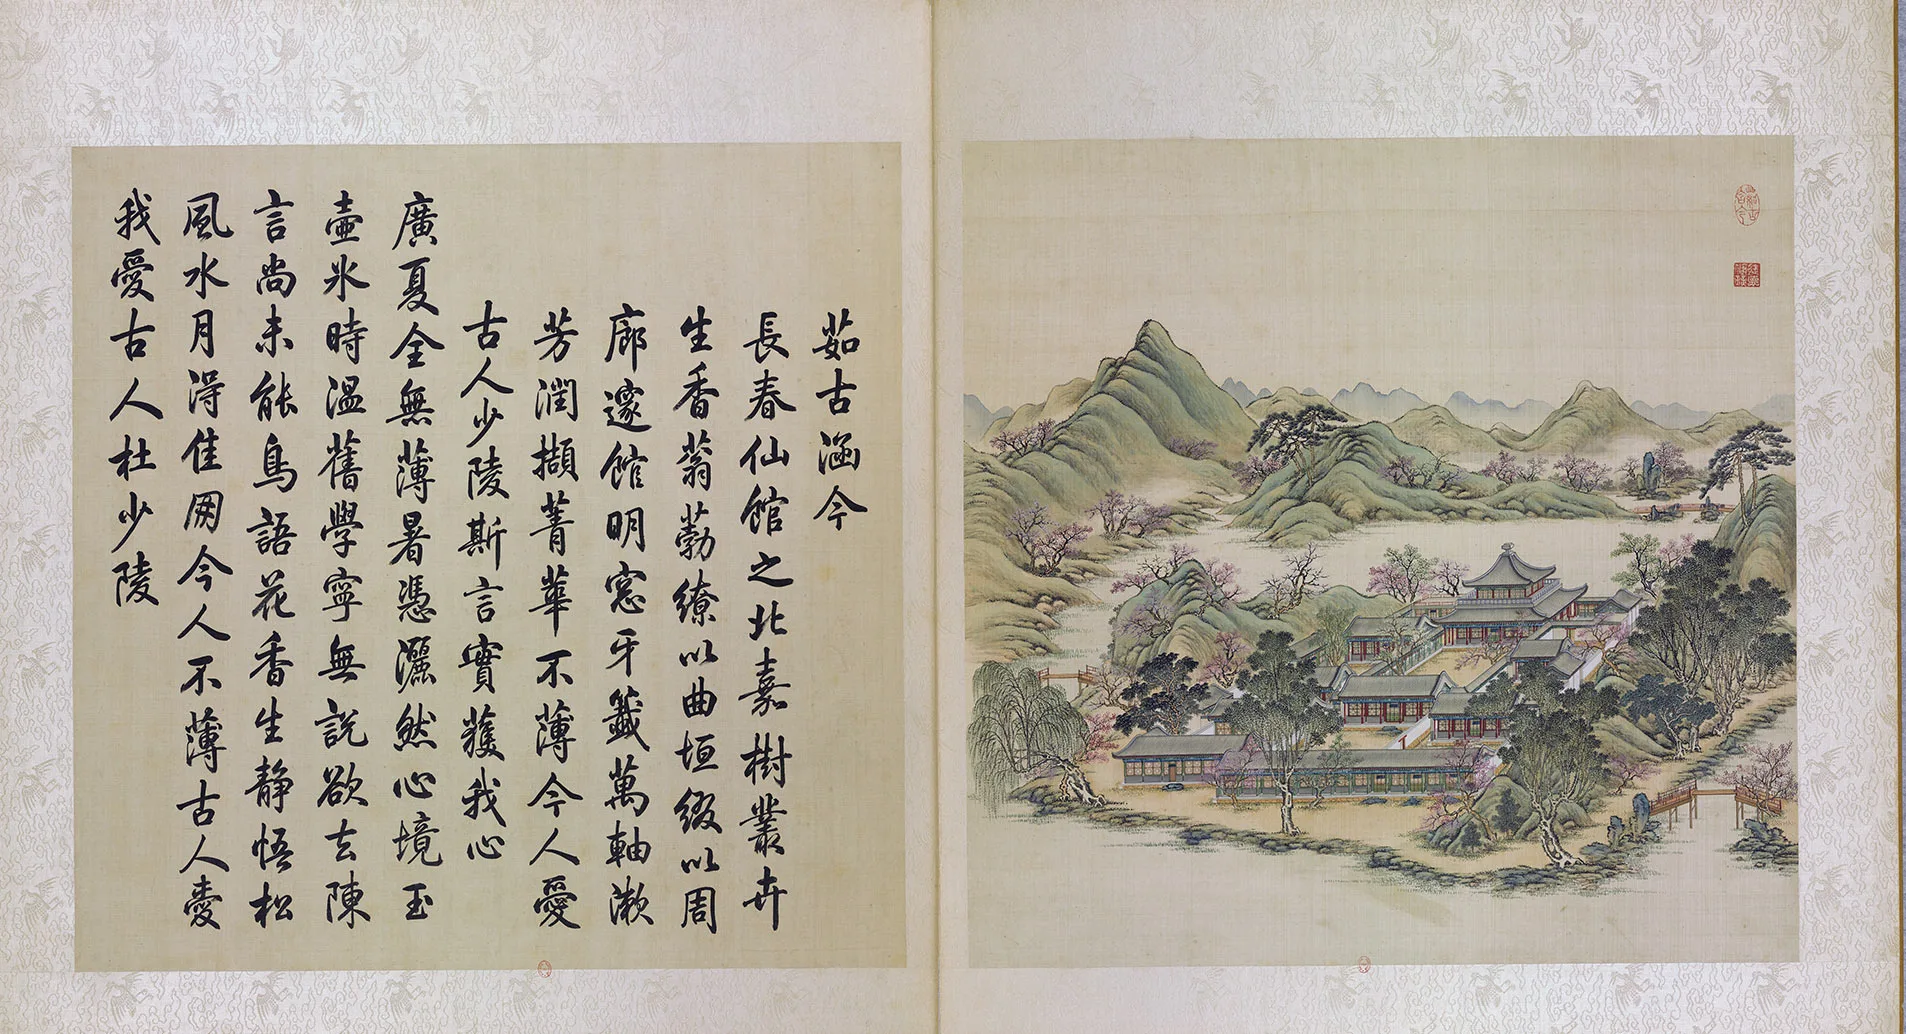 茹古涵今
長春仙館之北嘉樹叢卉
生香蓊葧繚以曲垣綴以周
廊邃館明窓牙籤萬軸漱
芳潤擷菁華不薄今人愛
古人少陵斯言實獲我心
廣夏全無薄暑憑灑然心境玉
壺氷時溫舊學寧無說欲去陳
言尚未能鳥語花香生静悟松
風水月得佳朋今人不薄古人愛
我愛古人杜少陵